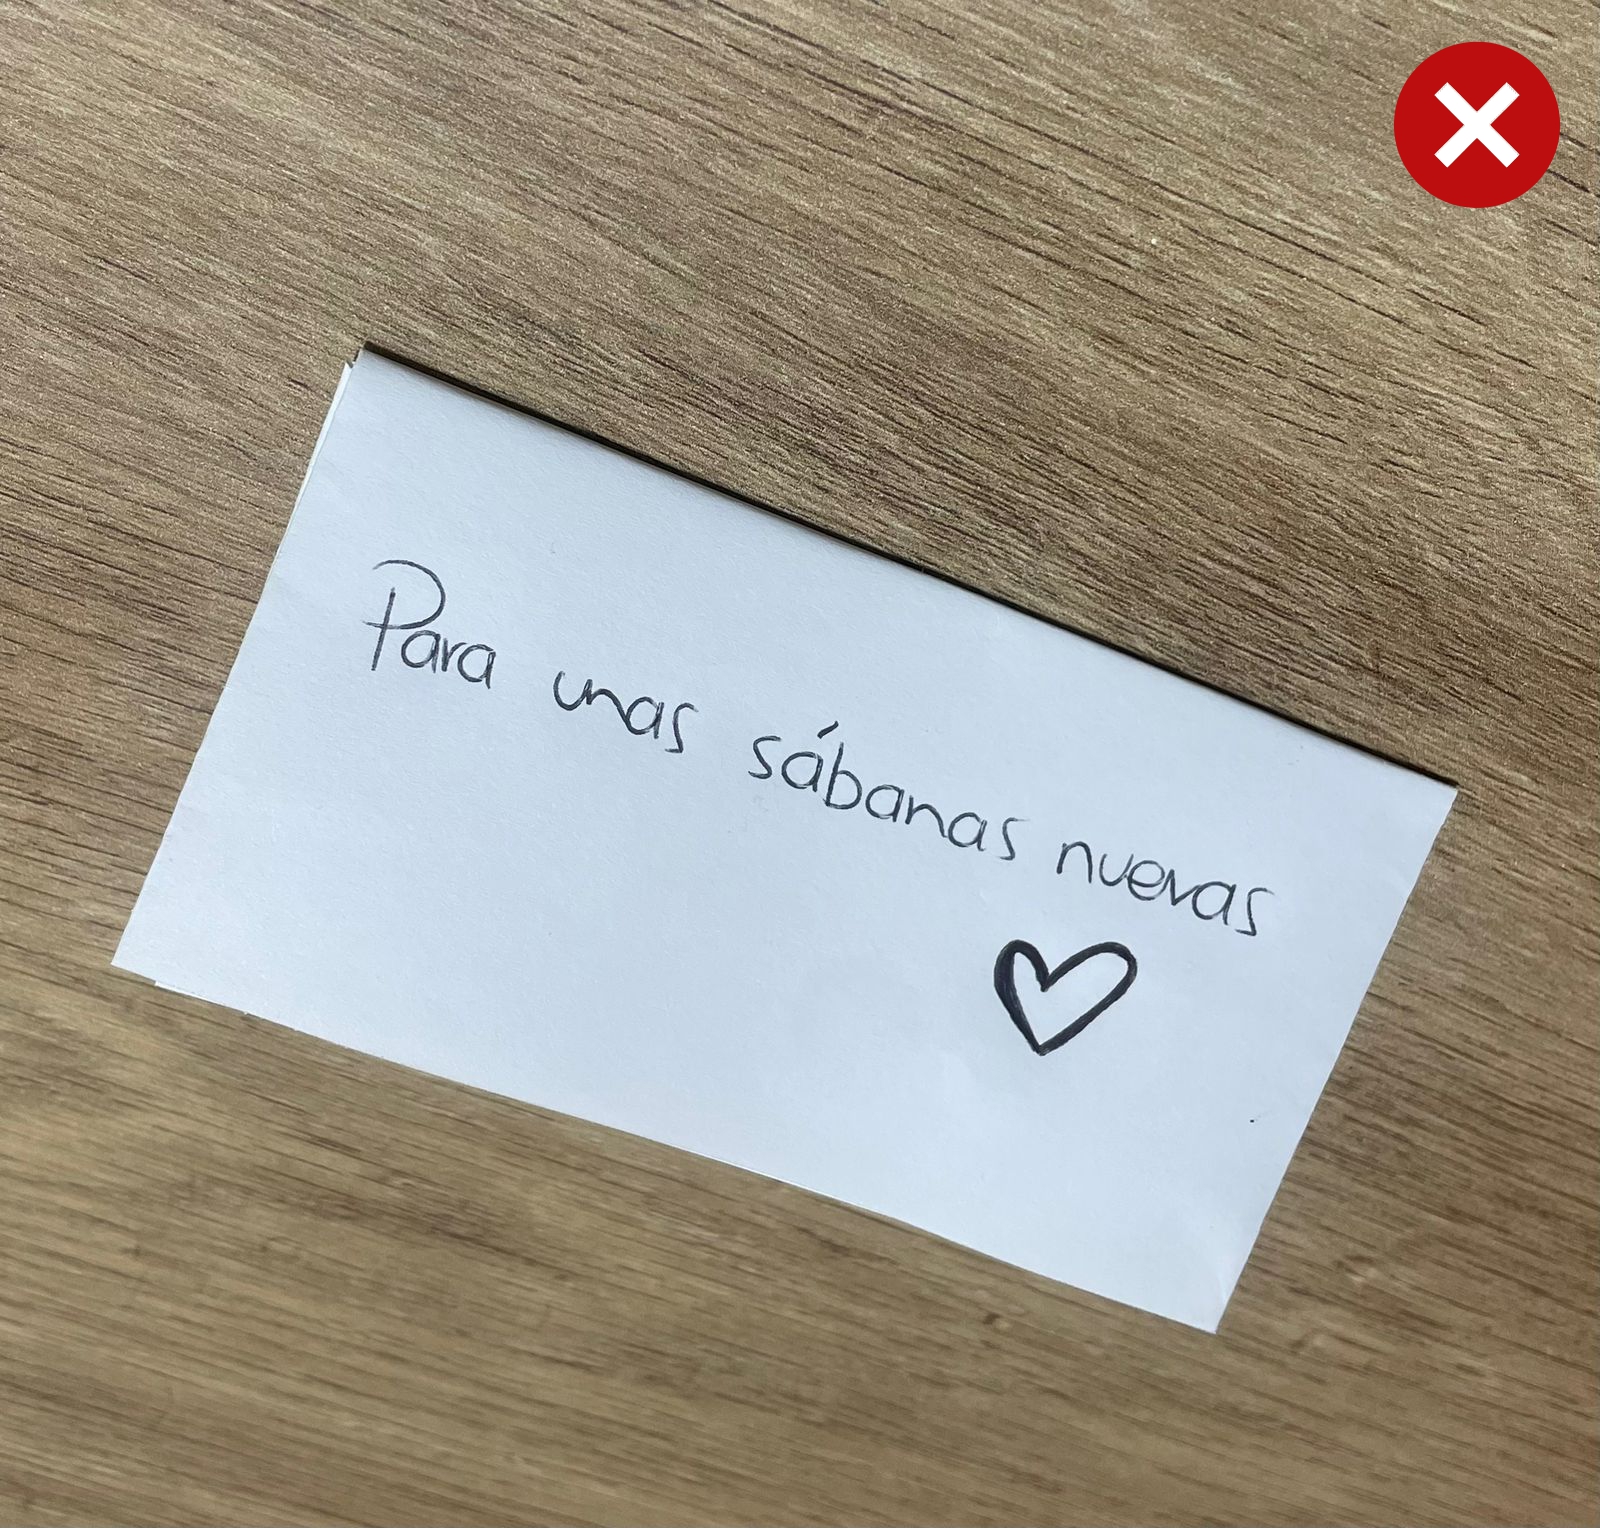 Para unas sábanas nuevas